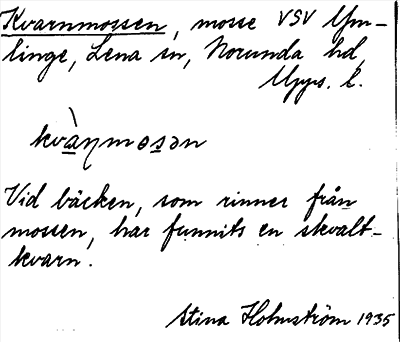 Kvarnmossen, mosse VSV Ym-
linge, Lena sn, Norunda hd,
Upps. l.
kvàɳmosən
Vid bäcken, som rinner från
mossen, har funnits en skvalt-
kvarn.
Stina Holmström 1935